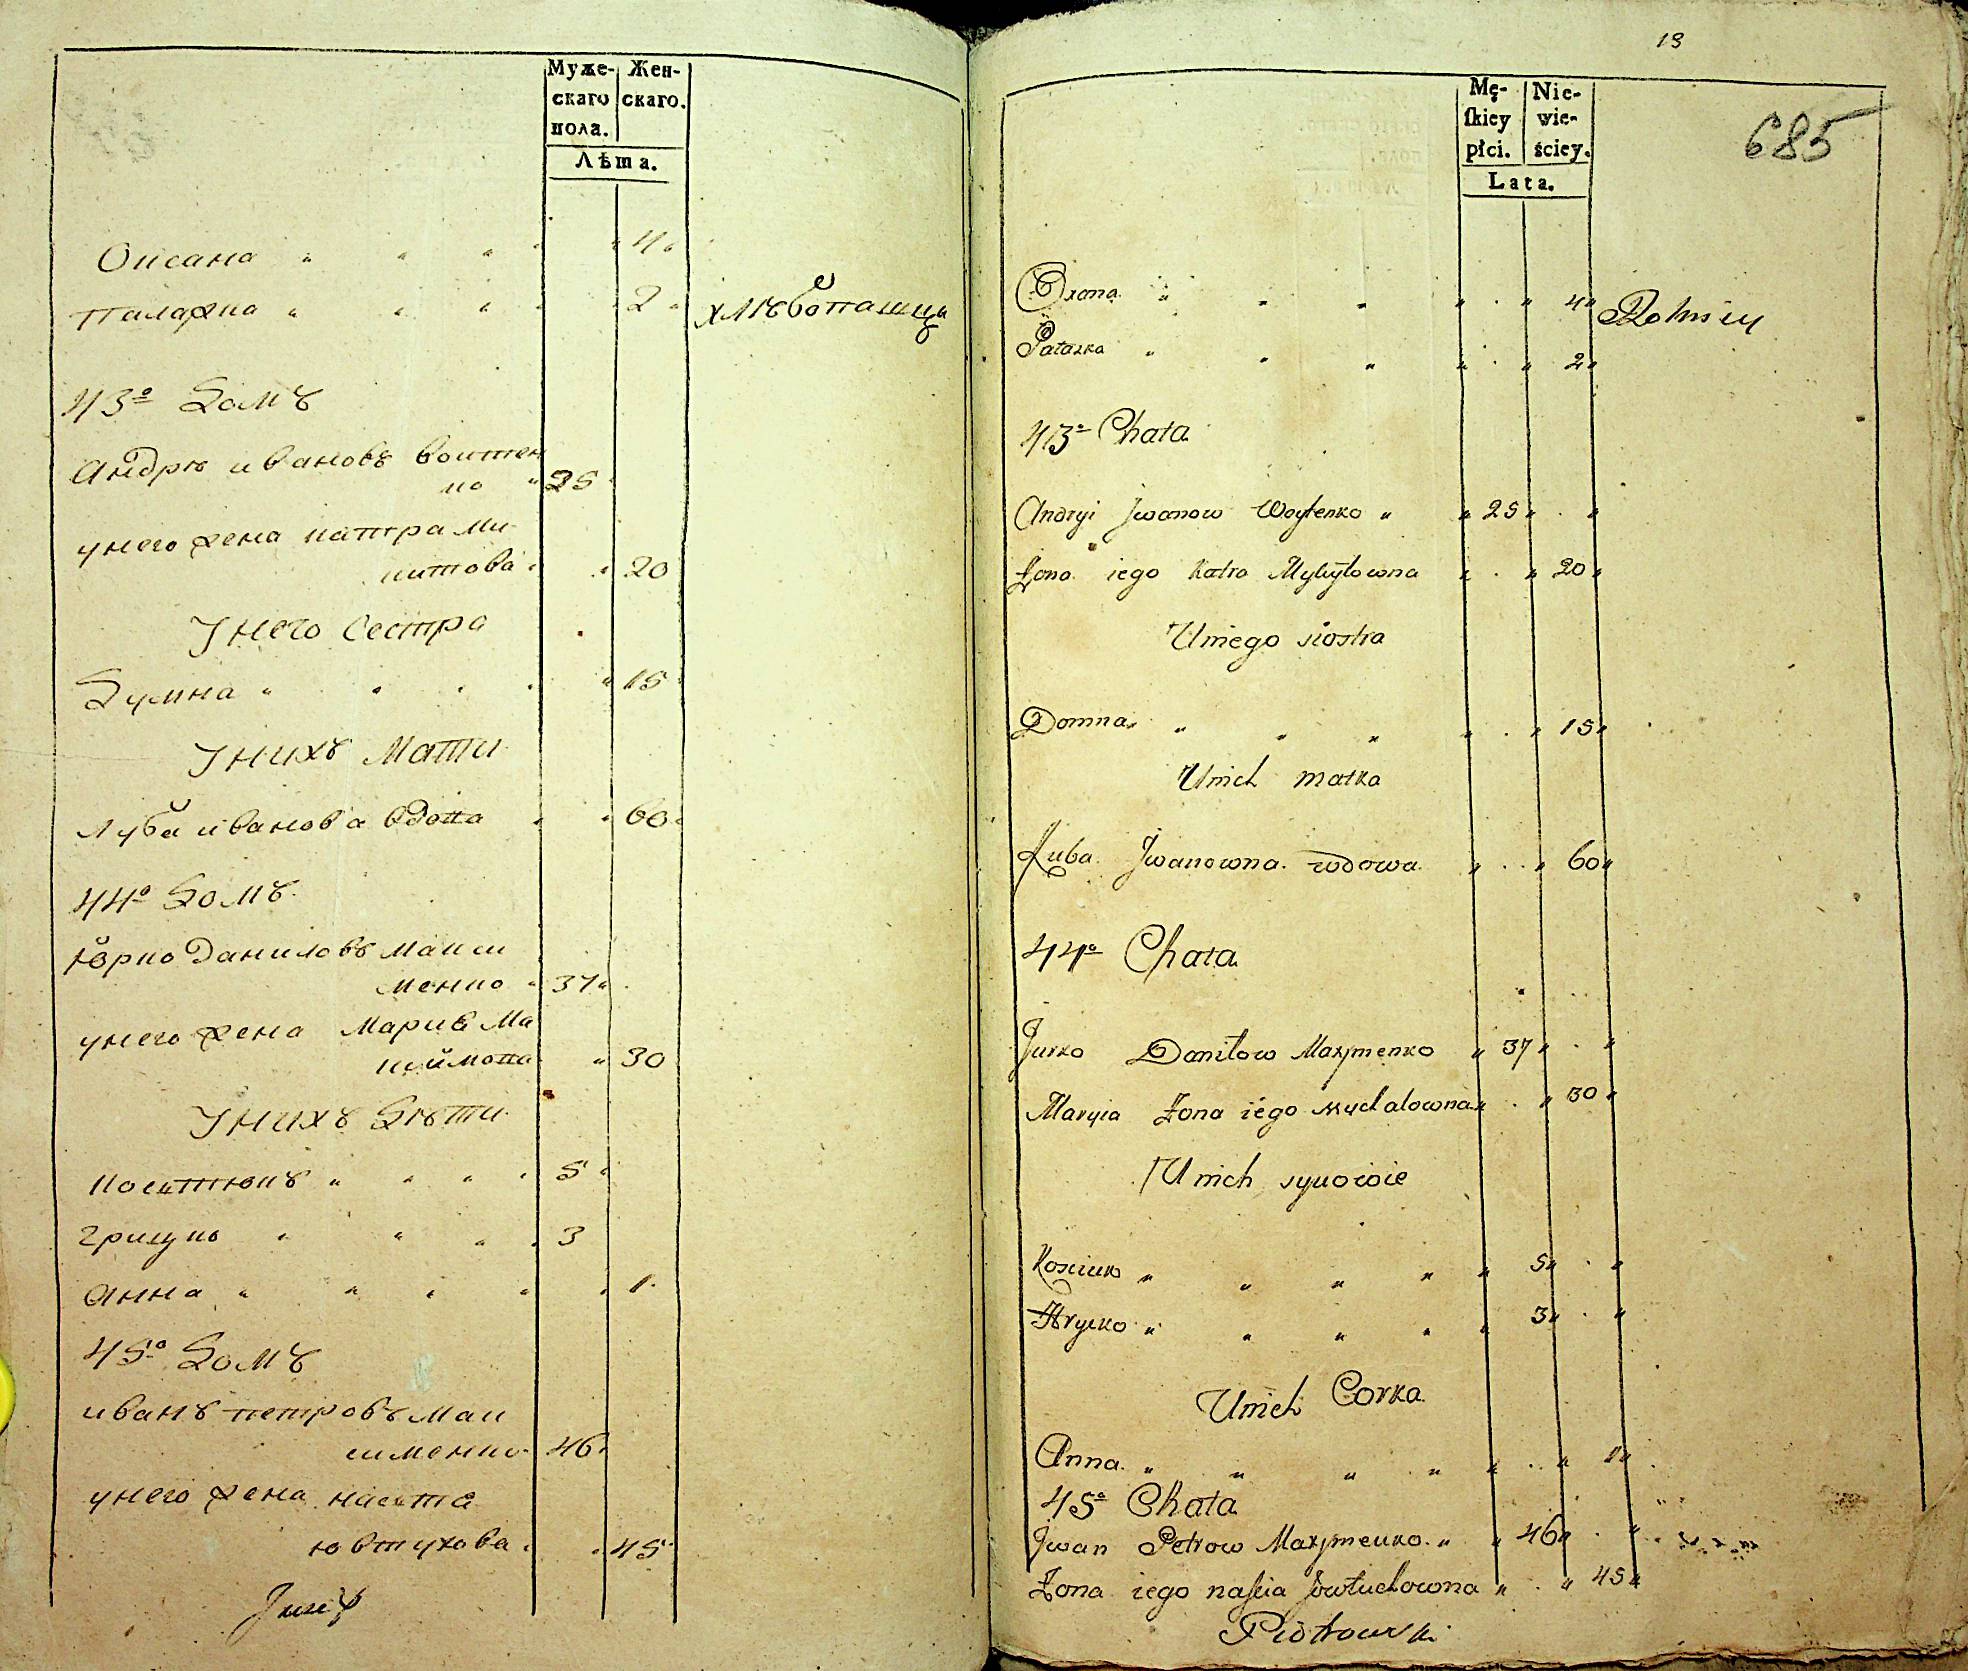 Муже- Жен-
скаго скаго.
пола.
Лѣта.
Оксана 4
Палажка 2 хлѣбопашцы
43º Домъ
Андрѣ ивановъ воитен
ко 25
унего жена катра Ми
китова 20
Унего Сестра
Думна 15
Унихъ Мати
Луба иванова вдова 60
44º Домъ
Юрко Даниловъ Макси
менко 37
унего жена Мария Ма
30
Унихъ Дѣти
Косттюкъ 5
Грицко 3
Анна 1
45º Домъ
иванъ петровъ Мак
сименко 46
унего жена настя
ювтухова 45
Juzef
13
685
Mę- Nie-
ſkiey wie-
płci. ściey.
Lata.
Oxana 4 Rolnicy
Pałazka 2
43º Chata
Andryi Jwanow Woytenko 25
Żona iego Katra Mykytowna 20
Uniego siostra
Domna 15
Unich matka
Łuba Jwanowna wdowa 60
44º Chata
Jurko Daniłow Maxymenko 37
Maryia Żona iego Mychalowna 30
Unich synowie
Kosciuk 5
Hrycko 3
Unich Corka
Anna 1
45º Chata
Jwan Petrow Maxymenko 46
Żona iego naſtia Jowtuchowna 45
Piotrowski